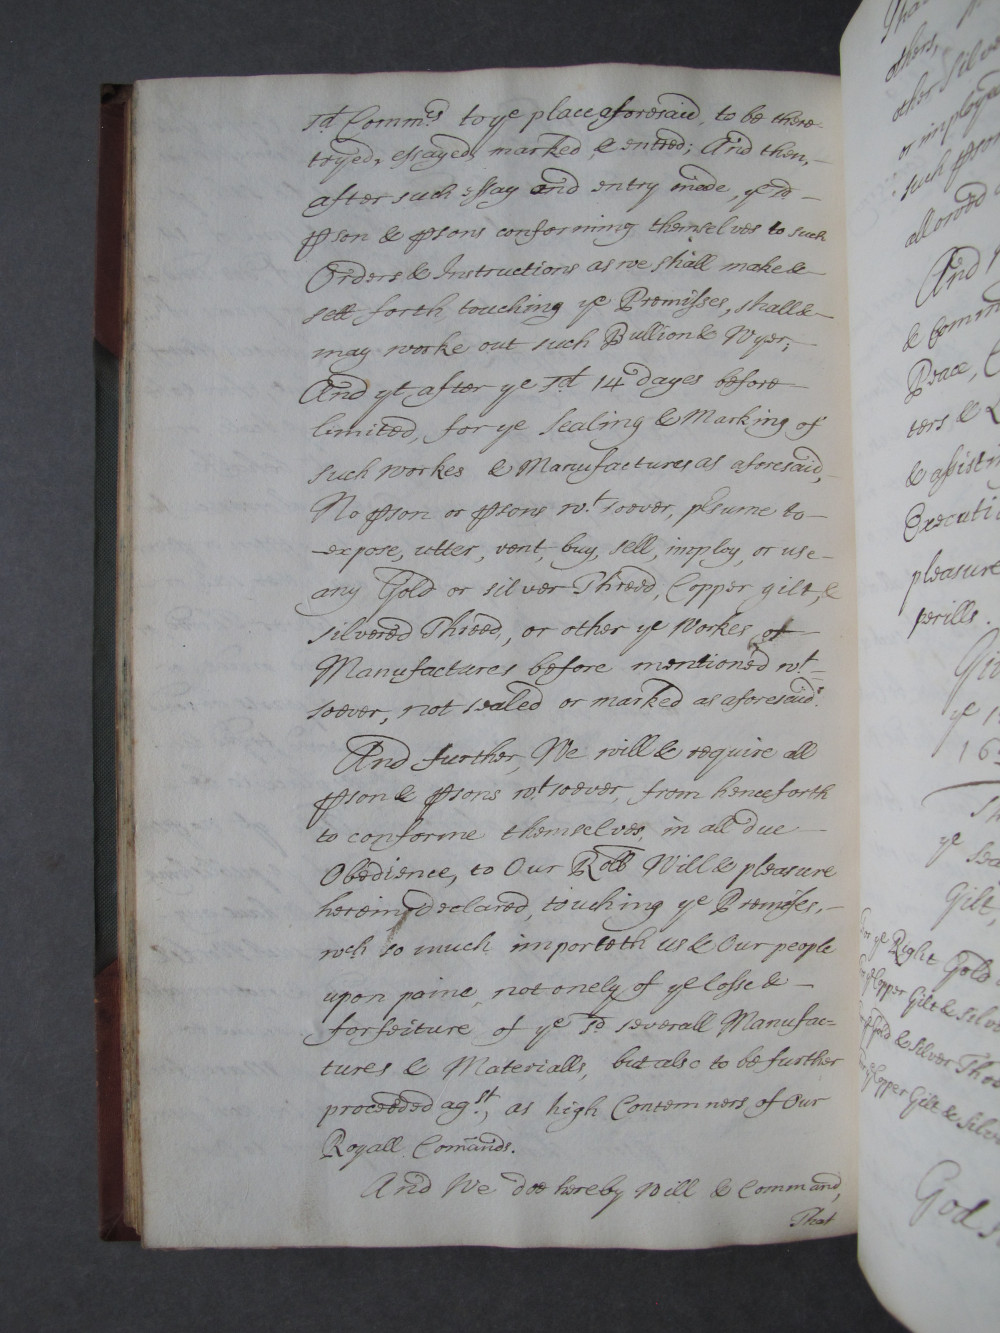 sd. Comm:rs to ye place aforesaid, to be there
tryed, essayed, marked, & entred; And then,
after such essay and entry made, ye sd
pson & psons conforming themselves to such
Orders & Instructions as we shall make &
sett forth touching ye Premisses, shall &
may worke out such Bullion & Wyer;
And yt after ye sd. 14 dayes before
limited, for ye Sealing & Marking of
such workes & Manufactures as aforesaid,
No pson or psons wt. soever, psume to
expose, utter, vent, buy, sell, imploy, or use
any Gold or silver Thread, Copper gilt, &
silvered Thread, or other ye Workes or
Manufactures before mentioned wt.
soever, not sealed or marked as aforesaid.
And further, We will & require all
pson & psons wt. soever, from henceforth
to conforme themselves, in all due
Obedience, to Our Roll Will & pleasure
herein declared, touching ye Premisses,
wch so much importeth us & Our people
upon paine, not onely of ye losse &
forfeiture of ye sd. severall Manufac=
tures & Materialls, but also to be further
proceeded agst., as high Contemners of Our
Royall Comands.
And We doe hereby Will & Command,
That
others,
other Silve
or imploya
such pson
allowed
And
& Comm
Peace,
ters &
& assistin
Executio
pleasure
perills.
Giv
ye
ye Sea
Gilt,
For ye Right Gold
Copper Gilt & Silve
Gold & Silver Thre
Copper Gilt & Silve
God s